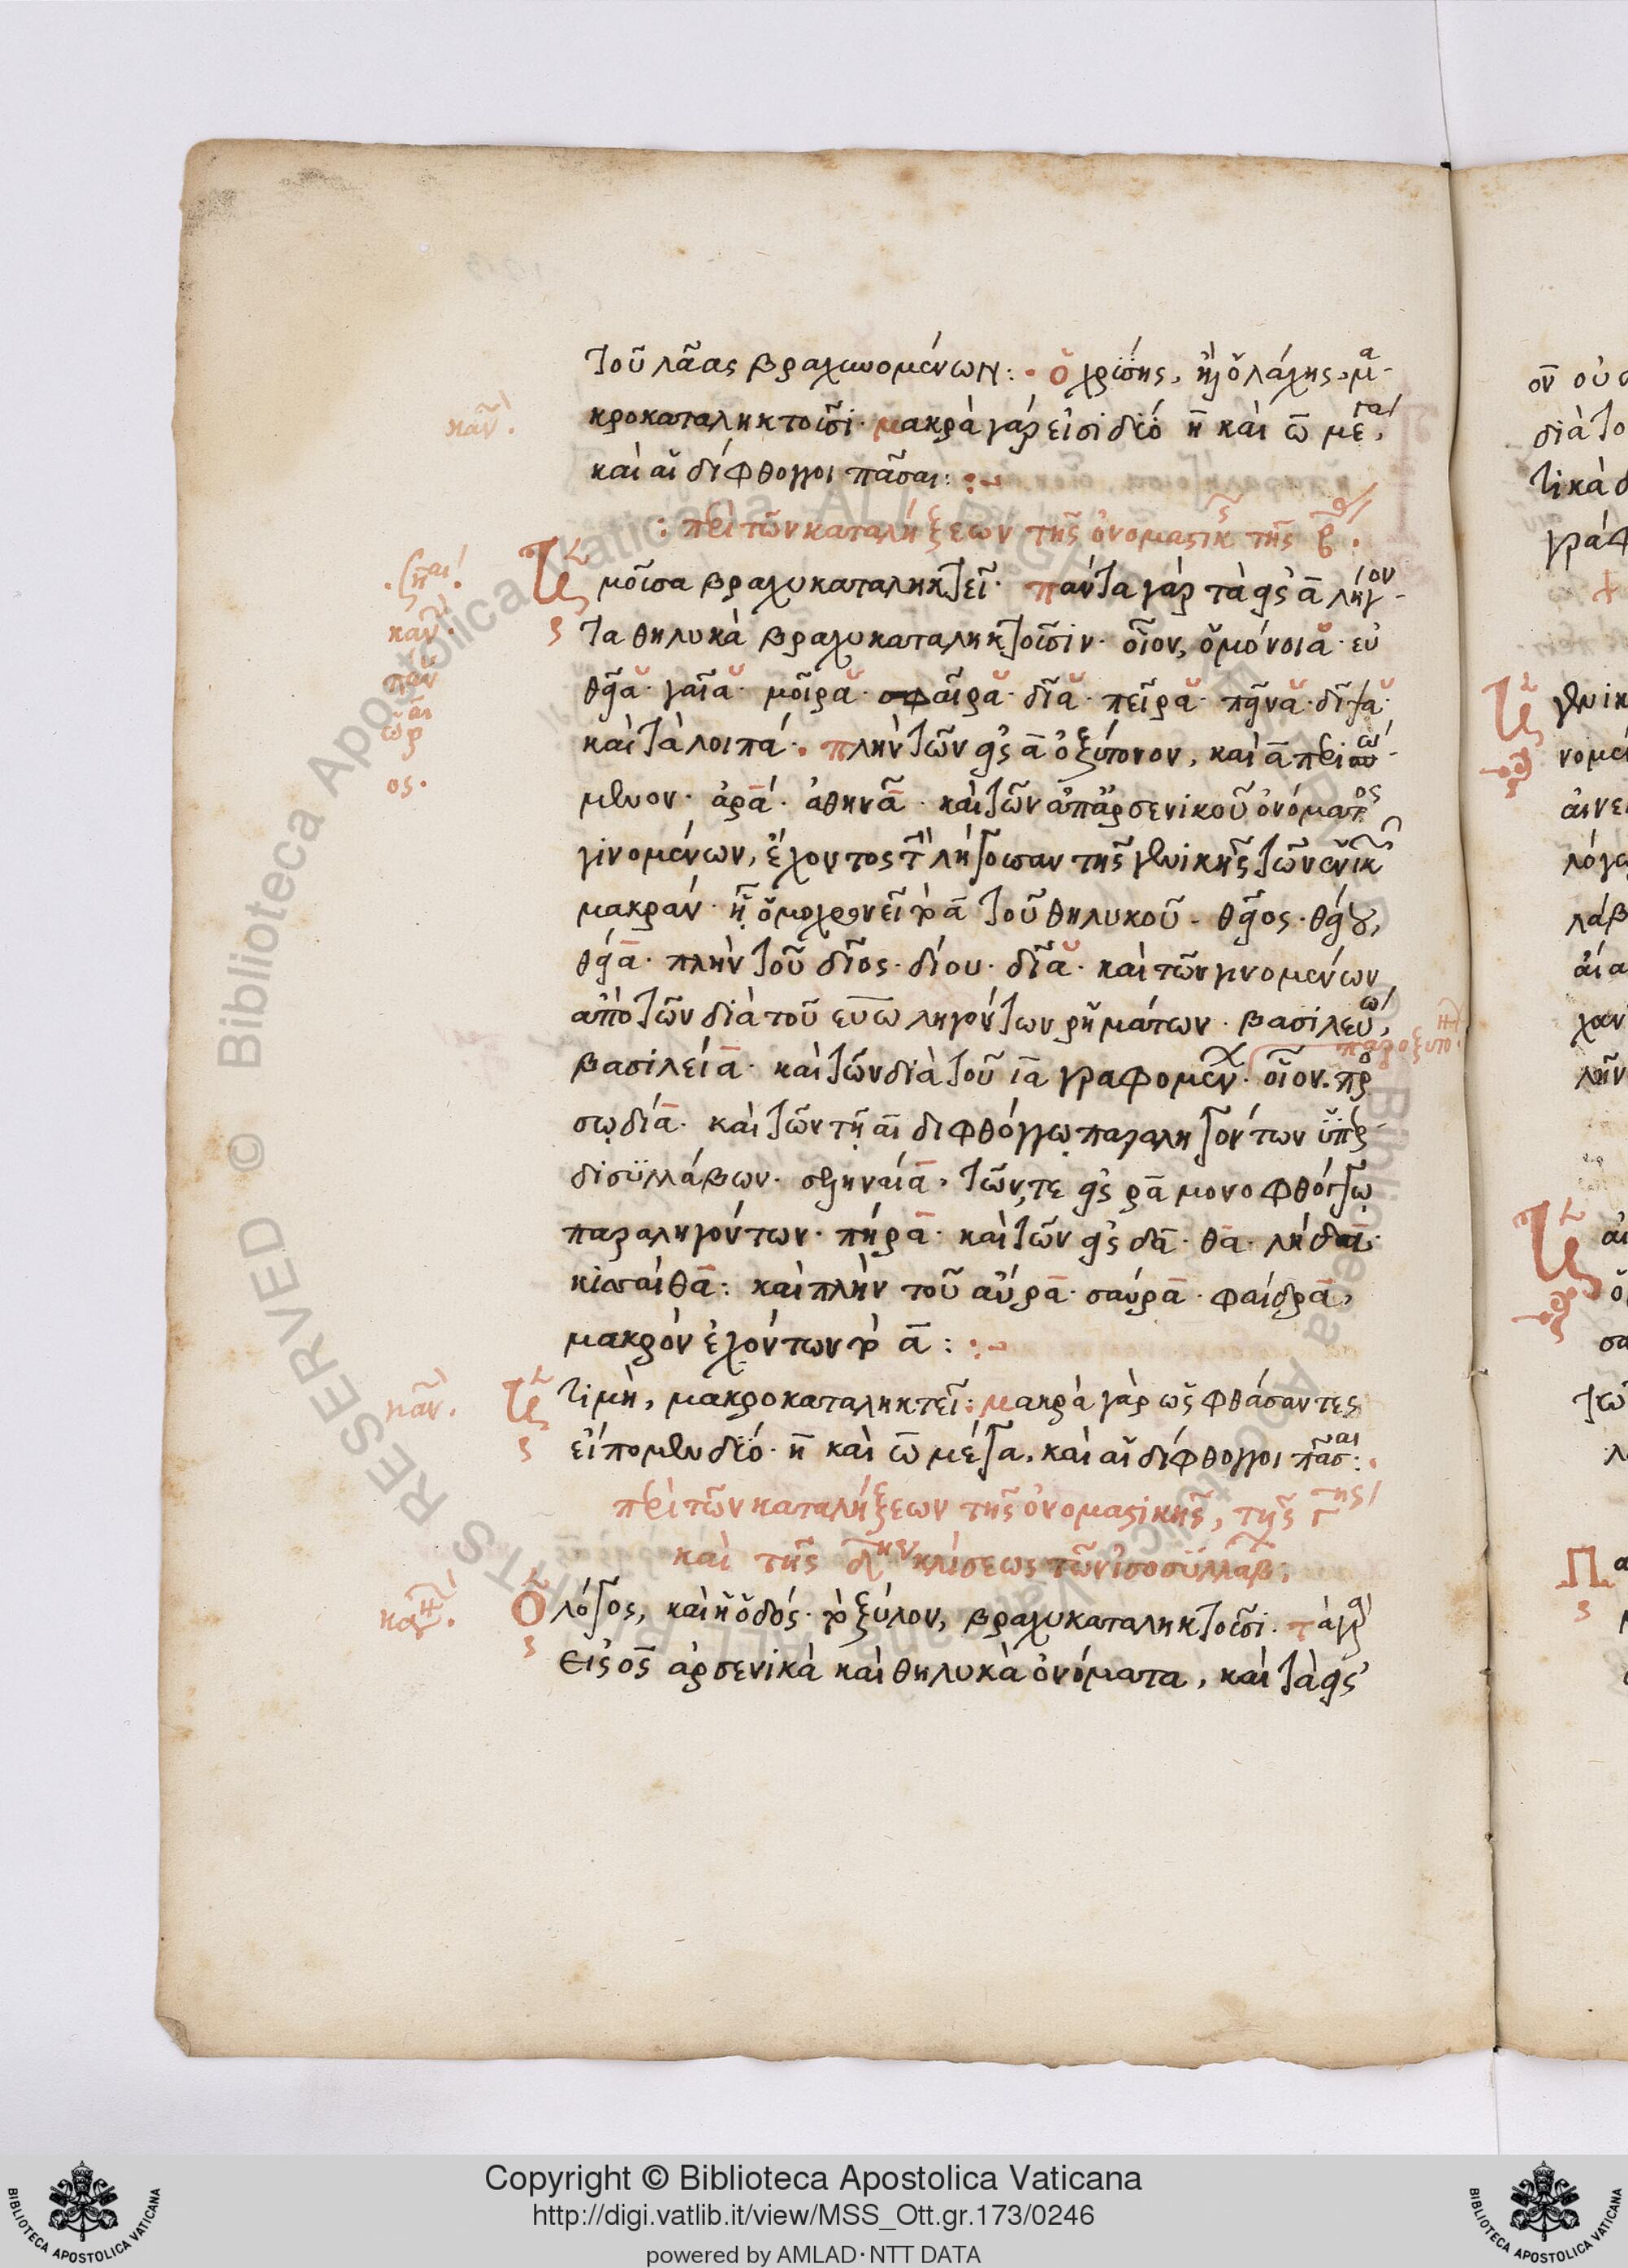 τοῦ λᾶας βραχυνομένων: · ὁ χρύσης, καὶ ὁ λάχης, μα-
κροκαταληκτοῦσι· μακρὰ γάρ εἰσι δύο η̄ καὶ ω̄ με
κανών.
καὶ αἱ δίφθογγοι πᾶσαι:
: περὶ τῶν καταλήξεων τῆς ὀνομαστικῆς τῆς β̄ .
μοῦσα βραχυκαταληκτεῖ· πάντα γὰρ τὰ εἰς ᾱ λήγον-
κανών.
τα θηλυκὰ βραχυκαταληκτοῦσιν· οἷον, ὁμόνοια· εὐ
θεῖα· γαῖα· μοῖρα· σφαῖρα· δῖα· πεῖρα· πεῖνα· δίψα·
καὶ τὰ λοιπά· πλὴν τῶν εἰς ᾱ ὀξύτονον, καὶ ᾱ περισπώ-
ος.
μενον· ἀρά· ἀθηνᾶ· καὶ τῶν ἀπὸ ἀρσενικοῦ ὀνόματος
γινομένων, ἔχοντος τὴν λήγουσαν τῆς γενικῆς τῶν ἑνικῶν
μακράν· ᾗ ὁμοχρονεῖ τὸ ᾱ τοῦ θηλυκοῦ· θεῖος· θείου,
θεία· πλὴν τοῦ δῖος· δίου· δῖα· καὶ τῶν γινομένων
ἀπὸ τῶν διὰ τοῦ εύω ληγόντων ῥημάτων· βασιλεύω,
παροξυτο
βασιλεία· καὶ τῶν διὰ τοῦ ια γραφομένων· οἷον· προ
σῳδία· καὶ τῶν τῇ αι διφθόγγῳ παραληγόντων ὑπὲρ
δισύλλαβων· σεληναία· τῶν τε εἰς ρᾱ μονοφθόγγῳ
παραληγόντων· πήρα· καὶ τῶν εἰς δᾱ· θᾱ· λήδα·
κισσαίθα: καὶ πλὴν τοῦ αὔρα· σαύρα· φαίδρα,
μακρὸν ἐχόντων τὸ ᾱ:
κανών.
τιμὴ, μακροκαταληκτεῖ: μακρὰ γὰρ ὡς φθάσαντες
εἴπομεν δύο· η̄ καὶ ω̄ μέγα, καὶ αἱ δίφθογγοι πᾶσαι:
περὶ τῶν καταλήξεων τῆς ὀνομαστικῆς, τῆς γ̄ης
καὶ τῆς δ̄ης κλίσεως τῶν ἰσοσυλλάβων:
Ὁ λόγος, καὶ ἡ ὁδός· τὸ ξύλον, βραχυκαταληκτοῦσι· τὰ γὰρ
εἰς ος ἀρσενικὰ καὶ θηλυκὰ ὀνόματα, καὶ τὰ εἰς
© Biblioteca Apostolica Vaticana ALL RIGHTS RESERVED
Copyright © Biblioteca Apostolica Vaticana
http://digi.vatlib.it/view/MSS_Ott.gr.173/0246
powered by AMLAD·NTT DATA
BIBLIOTECA APOSTOLICA VATICANA
BIBLIOTECA APOSTOLICA VATICANA